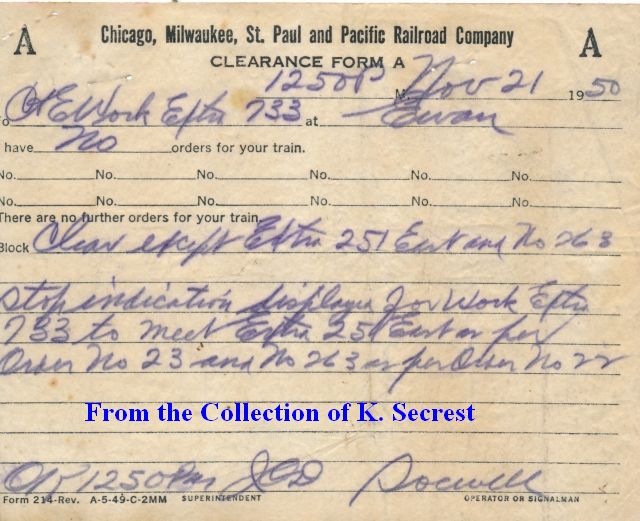 A Chicago, Milwaukee, St. Paul and Pacific Railroad Company A
CLEARANCE FORM A
1250P M. Nov 21 1950
To C&E Work Extra 733 at Ewan
I have No orders for your train.
No. No. No. No. No. No.
No. No. No. No. No. No.
There are no further orders for your train.
Block Clear except Extra 251 East and No 263
Stop indication displayed for Work Extra
733 to meet Extra 251 East as per
Order No 23 and No 263 as per Order No 22
From the Collection of K. Secrest
OK 1250PM JCD
Form 214-Rev. A-5-49-C-2MM SUPERINTENDENT OPERATOR OR SIGNALMAN